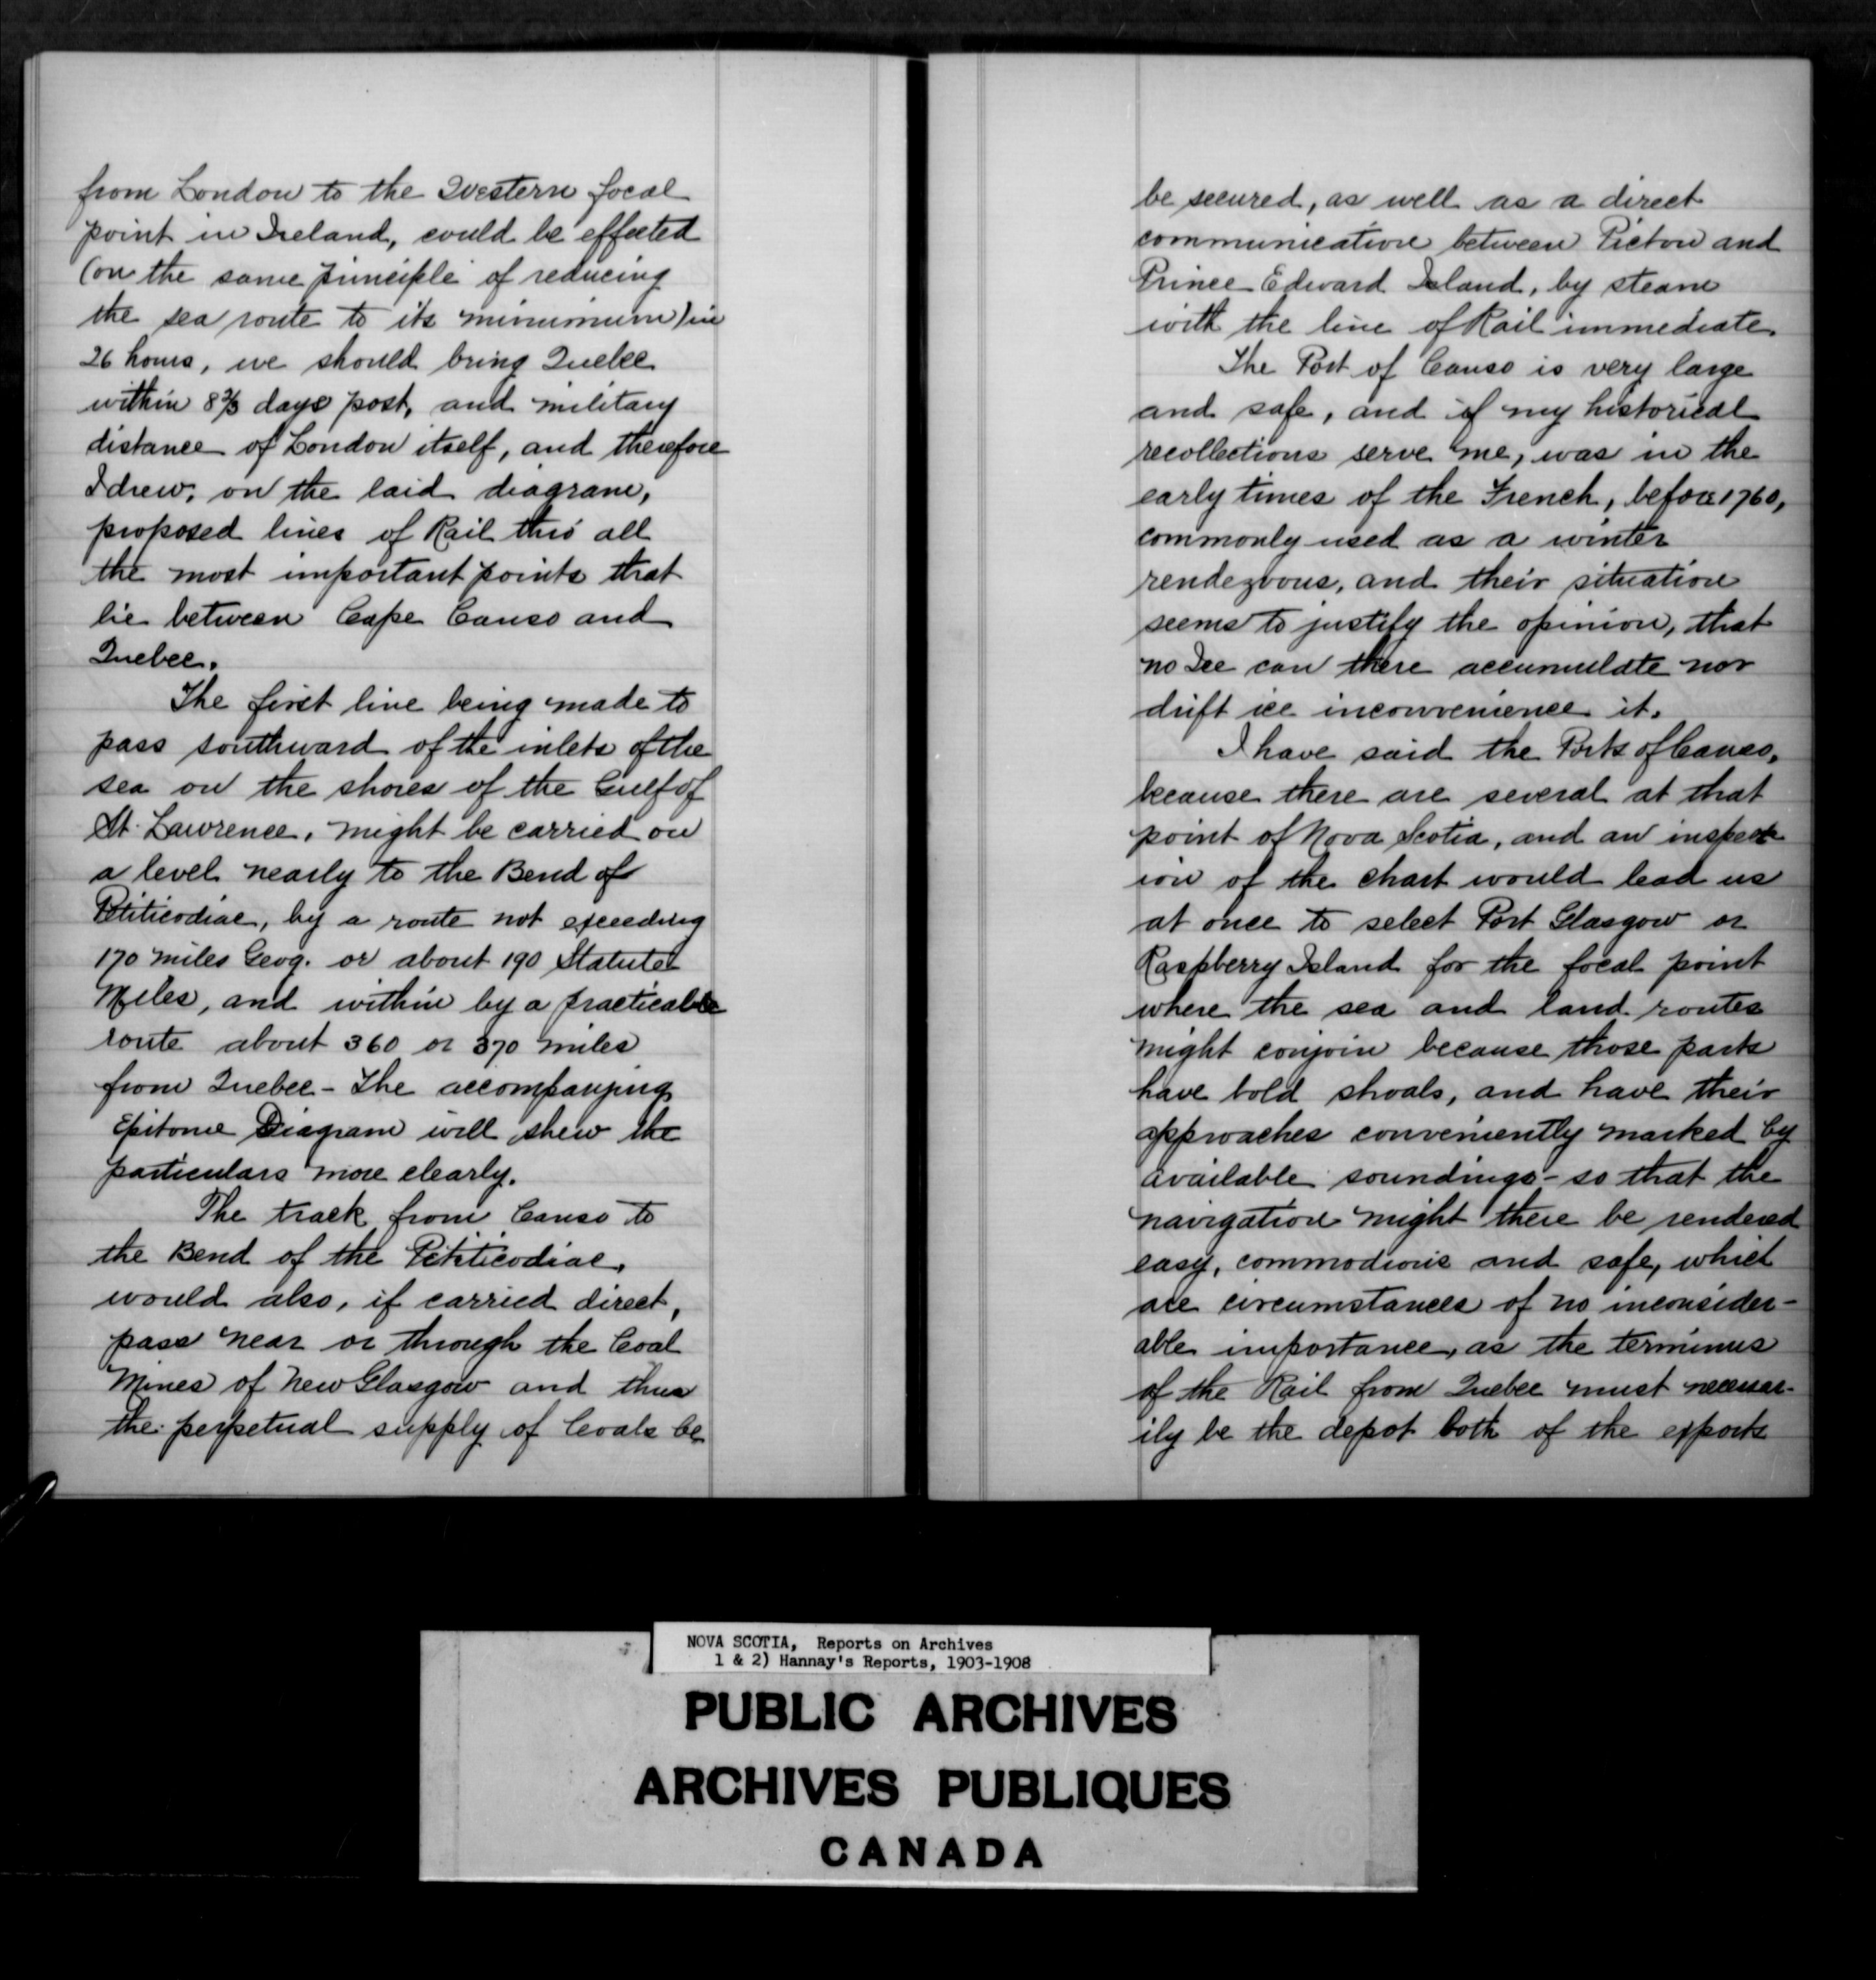 from London to the Western focal
point in Ireland, could be effected
(on the same principle of reducing
the sea route to its minimum) in
26 hours, we should bring Quebec
within 8 2/3 days post, and military
distance of London itself, and therefore
I drew, on the laid diagram,
proposed lines of Rail thro' all
the most important points that
lie between Cape Canso and
Quebec.
The first line being made to
pass southward of the inlets of the
sea on the shores of the Gulf of
St. Lawrence, might be carried on
a level nearly to the Bend of
Petiticodiac, by a route not exceeding
170 miles Geog. or about 190 Statute
Miles, and within by a practicable
route about 360 or 370 miles
from Quebec - The accompanying
Epitome Diagram will shew the
particulars more clearly.
The track from Canso to
the Bend of the Petiticodiac,
would also, if carried direct,
pass near or through the Coal
Mines of New Glasgow and thus
the perpetual supply of Coals be
be secured, as well as a direct
communication between Pictou and
Prince Edward Island, by steam
with the line of Rail immediate.
The Port of Canso is very large
and safe, and if my historical
recollections serve me, was in the
early times of the French, before 1760,
commonly used as a winter
rendezvous, and their situation
seems to justify the opinion, that
no Ice can there accumulate nor
drift ice inconvenience it.
I have said the Ports of Canso,
because there are several at that
point of Nova Scotia, and an inspect
ion of the chart would lead us
at once to select Port Glasgow or
Raspberry Island for the focal point
where the sea and land routes
might conjoin because those parts
have bold shoals, and have their
approaches conveniently marked by
available soundings - so that the
navigation might there be rendered
easy, commodious and safe, which
are circumstances of no inconsider-
able importance, as the terminus
of the Rail from Quebec must necessar-
ily be the depot both of the exports
NOVA SCOTIA, Reports on Archives
1 & 2) Hannay's Reports, 1903-1908
PUBLIC ARCHIVES
ARCHIVES PUBLIQUES
CANADA